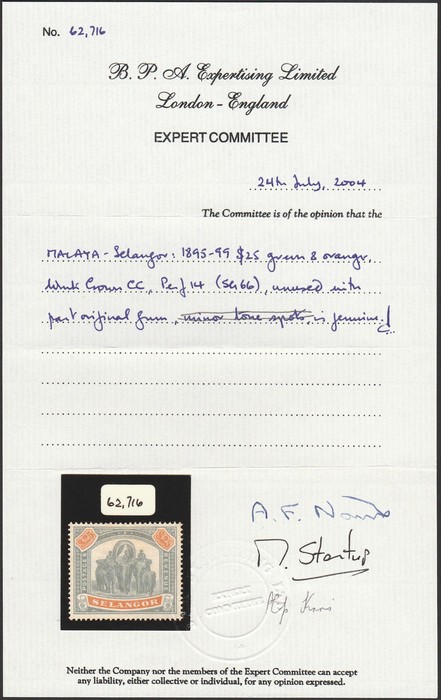 No. 62,716
B. P. A. Expertising Limited
London - England
EXPERT COMMITTEE
24th July, 2004
The Committee is of the opinion that the
MALAYA - Selangor: 1895-99 $25 green & orange,
Wmk Crown CC, Perf 14 (SG66), unused with
part original gum, minor tone spots, is genuine.
62,716
POSTAGE
REVENUE
SELANGOR
A. F. Norris
M. Startup
Neither the Company nor the members of the Expert Committee can accept
any liability, either collective or individual, for any opinion expressed.